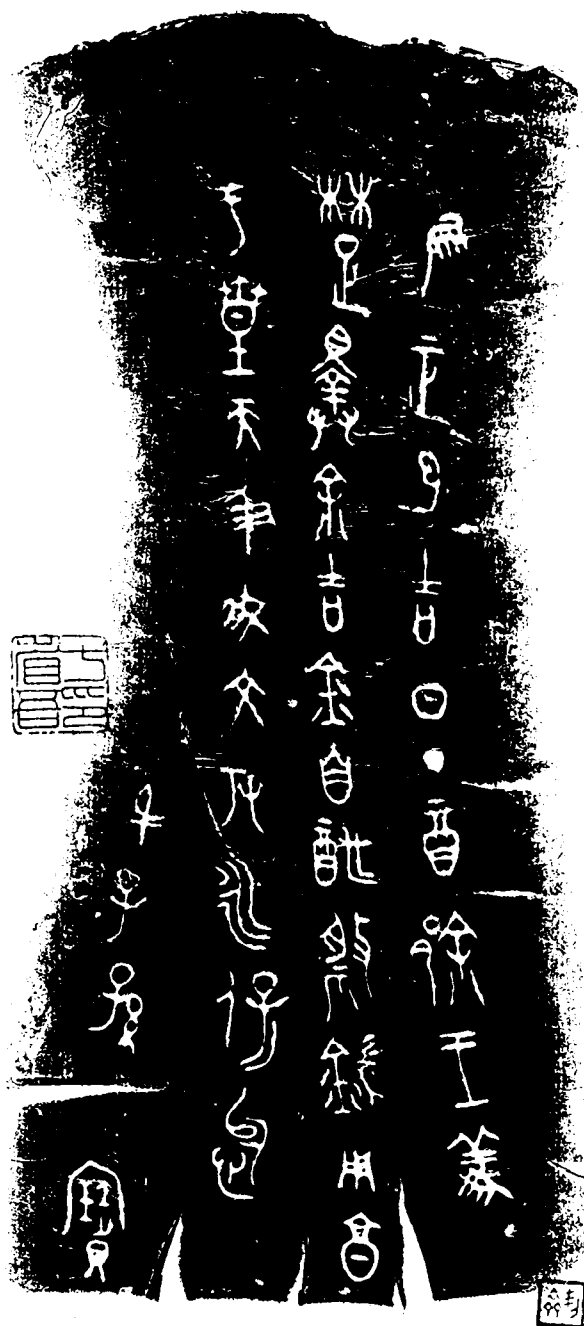 隹正月吉日丁酉䣄王義
楚擇余吉金自酢祭鍴用亯
于皇天及我文考永保怠
身子孫寶